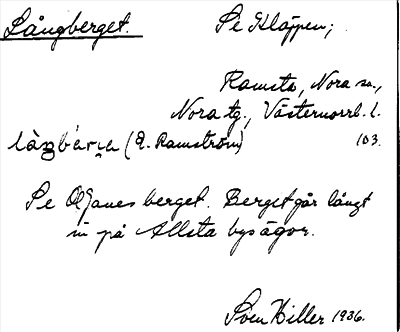 Långberget.
Se Kläppen;
Ramsta, Nora sn.,
Nora tg., Västernorrl. l.
(E. Ramström) 103.
Se berget. Berget går långt
in på Allsta bys ägor.
Sven Hiller 1936.